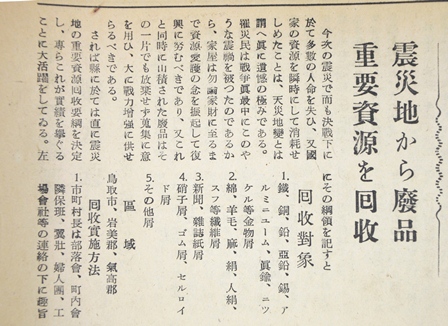 震災地から廢品
重要資源を囘收
今次の震災で而も決戰下に
於て多數の人命を失ひ、又國
家の資源を瞬時にして消耗せ
しめたことは、天災地變とは
謂へ眞に遺憾の極みである。
罹災民は戰爭眞最中にこのや
うな震禍を被つたのであるか
ら、家屋は勿論家財に至るま
で資源愛護の念を振起して復
興に努むべきであり、又これ
と同時に山積された廢品はそ
の一片でも放棄せず蒐集に意
を用ひ、大に戰力增强に供せ
らるべきである。
されば縣に於ては直に震災
地の重要資源囘收要綱を決定
し、專らこれが實績を擧ぐる
ことに大活躍をしてゐる。左
にその綱領を記すと
囘收對象
1.鐵、銅、鉛、亞鉛、錫、ア
ルミニユーム、眞鍮、ニツ
ケル等金物屑
2.綿、羊毛、麻、絹、人絹、
スフ等纖維屑
3.新聞、雜誌紙屑
4.硝子屑、ゴム屑、セルロイ
ド屑
5.その他屑
區域
鳥取市、岩美郡、氣高郡
囘收實施方法
1.市町村長は部落會、町內會
隣保班、翼壯、婦人團、工
場會社等の連絡の下に趣旨